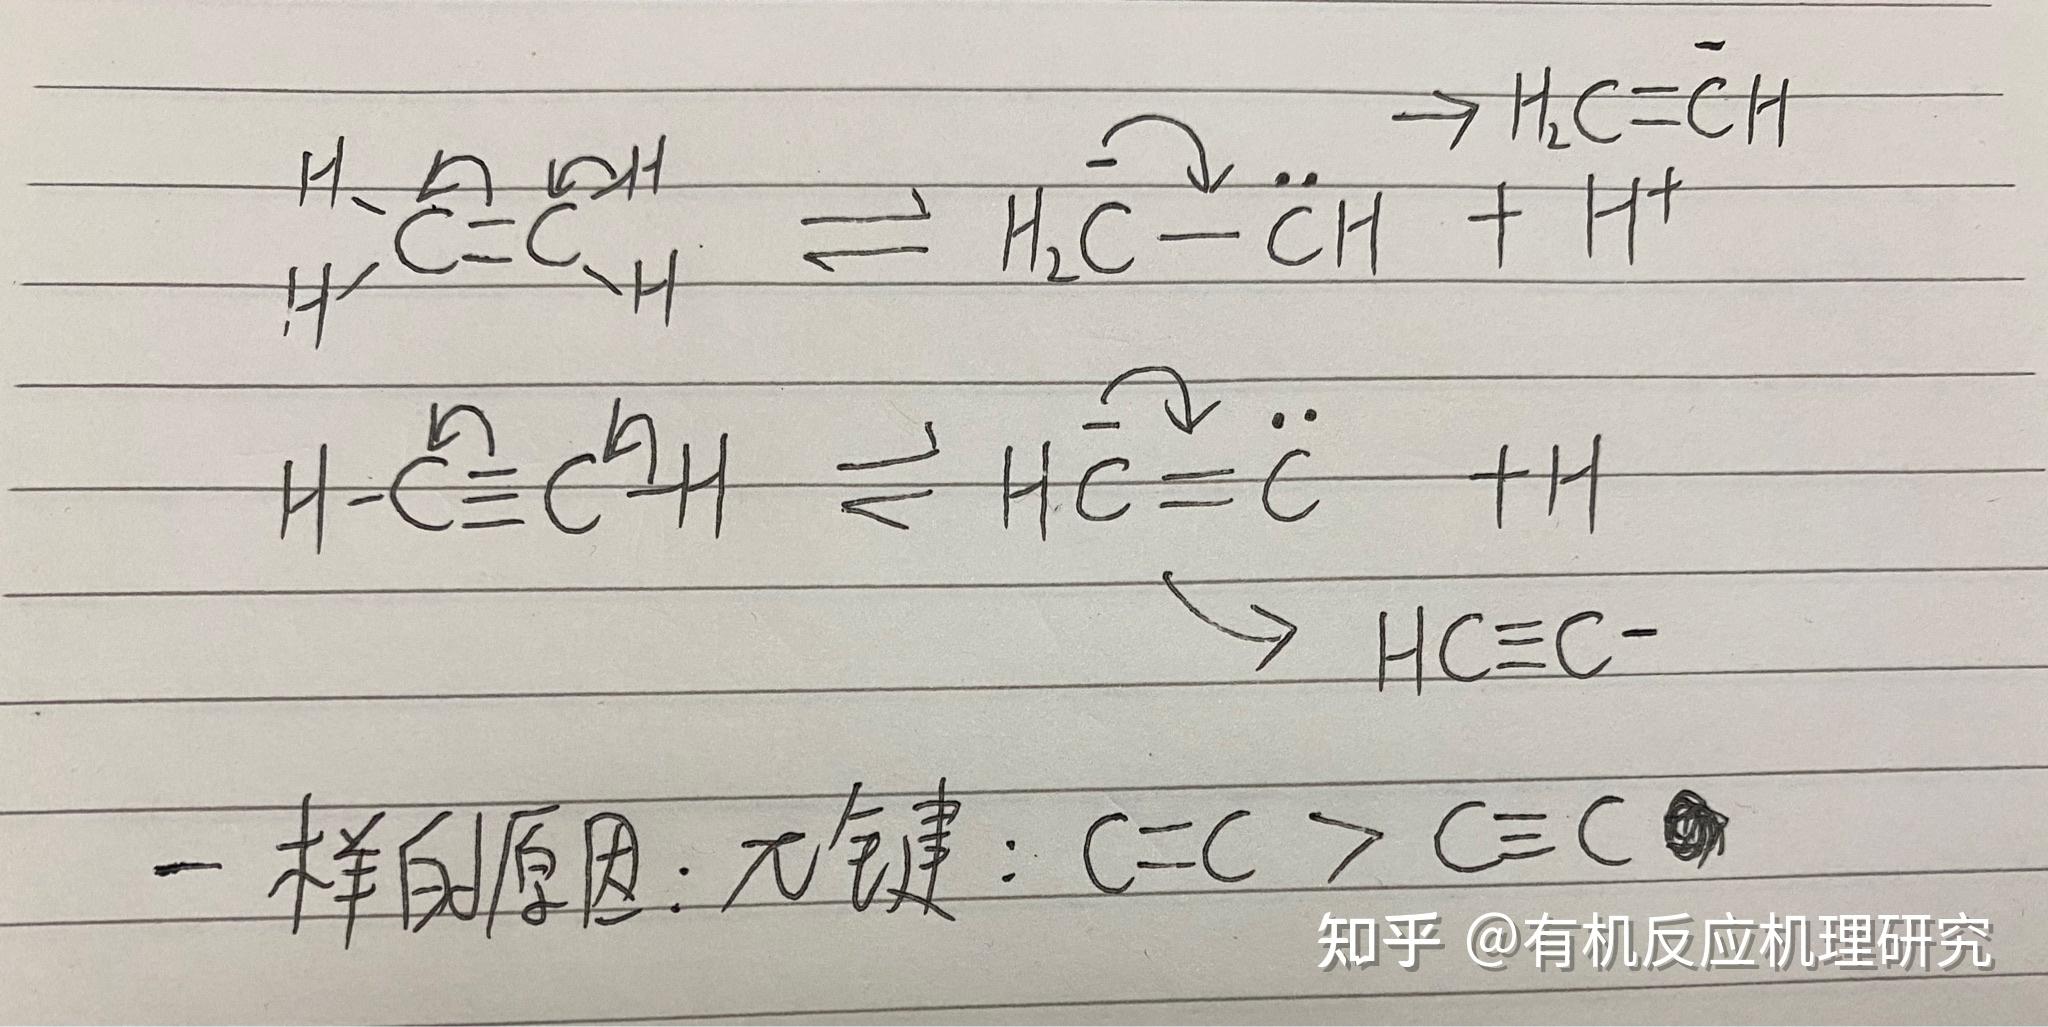 → H₂C=C̄H
H H
C=C ⇌ H₂C̄—C̈H + H⁺
H H
H-C≡C-H ⇌ HC̄=C̈ +H
→ HC≡C-
一样的原因:π键:C=C > C≡C
知乎 @有机反应机理研究